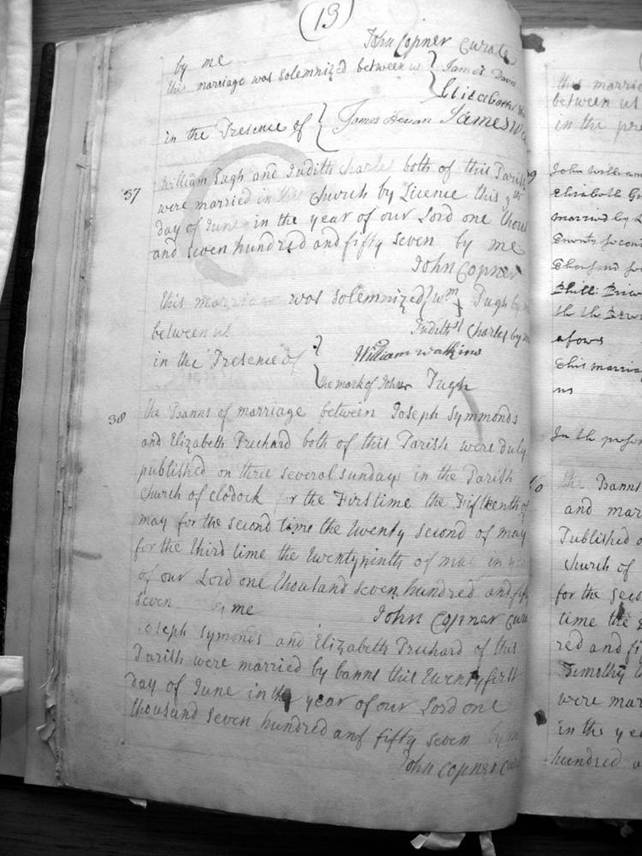 (13)
by me John Copner Curate
this marriage was solemnized between us { James
Elizabeth
in the Presence of { James
37
William Pugh and Judith Charles both of this Parish
were married in this Church by Licence this
day of June in the year of our Lord one thou
and seven hundred and fifty seven by me
John Copner
this marriage was solemnized } Wm Pugh by
between us Judith Charles by
in the Presence of { William Watkins
the mark of John Pugh
38
the Banns of marriage between Joseph Symmonds
and Elizabeth Prichard both of this Parish were duly
published on three several sundays in the Parish
Church of Clodock for the First time the Fifteenth of
may for the second time the twenty second of may
for the third time the twenty ninth of may in
of our Lord one thousand seven hundred and fif
seven me John Copner Cura
Joseph Symonds and Elizabeth Prichard of this
Parish were married by banns this twenty first
day of June in the year of our Lord one
thousand seven hundred and fifty seven by
John Copner Cura
this marri
between us
in the pre
John William
Elizabeth
married by
afore
this marria
us
In the pre
the Banns
and mar
Published o
Church of
for the sec
time the
red and fi
Timothy
were mar
in the ye
hundred a